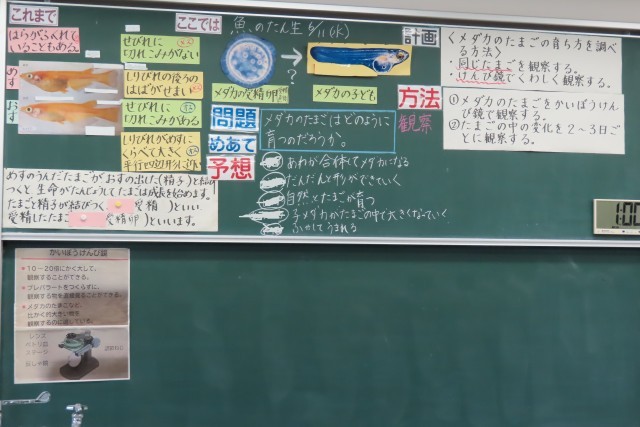 これまで
ここでは
魚のたん生 5/11(水)
計画
はらがふくれて
いることもある。
めす
おす
せびれに
切れこみがない
しりびれの後ろの
はばがせまい
せびれに
切れこみがある
しりびれがめすに
くらべて大きく
めすのうんだたまごがおすの出した(精子)と結び
つくと生命がたんじょうしてたまごは成長を始めます。
たまごと精子が結びつく 受精 )といい
受精したたまご 受精卵 )といいます。
?
メダカの受精卵
メダカの子ども
問題
めあて
メダカのたまごはどのように
育つのだろうか。
予想
あわが合体してメダカになる
だんだんと形ができていく
自然とたまごが育つ
子メダカがたまごの中で大きくなっていく
ふかしてうまれる
方法
観察
<メダカのたまごの育ち方を調べ
る方法>
・同じたまごを観察する。
・けんび鏡でくわしく観察する。
①メダカのたまごをかいぼうけん
び鏡で観察する。
②たまごの中の変化を2~3日ご
とに観察する。
1:00
かいぼうけんび鏡
10~20倍に大きくして、
観察することができる。
プレパラートをつくらずに、
観察する物を直接見ることができる。
メダカのたまごなど、
比かく的大きい物を
観察するのに適している。
レンズ
ステージ
反しゃ鏡
調節ねじ